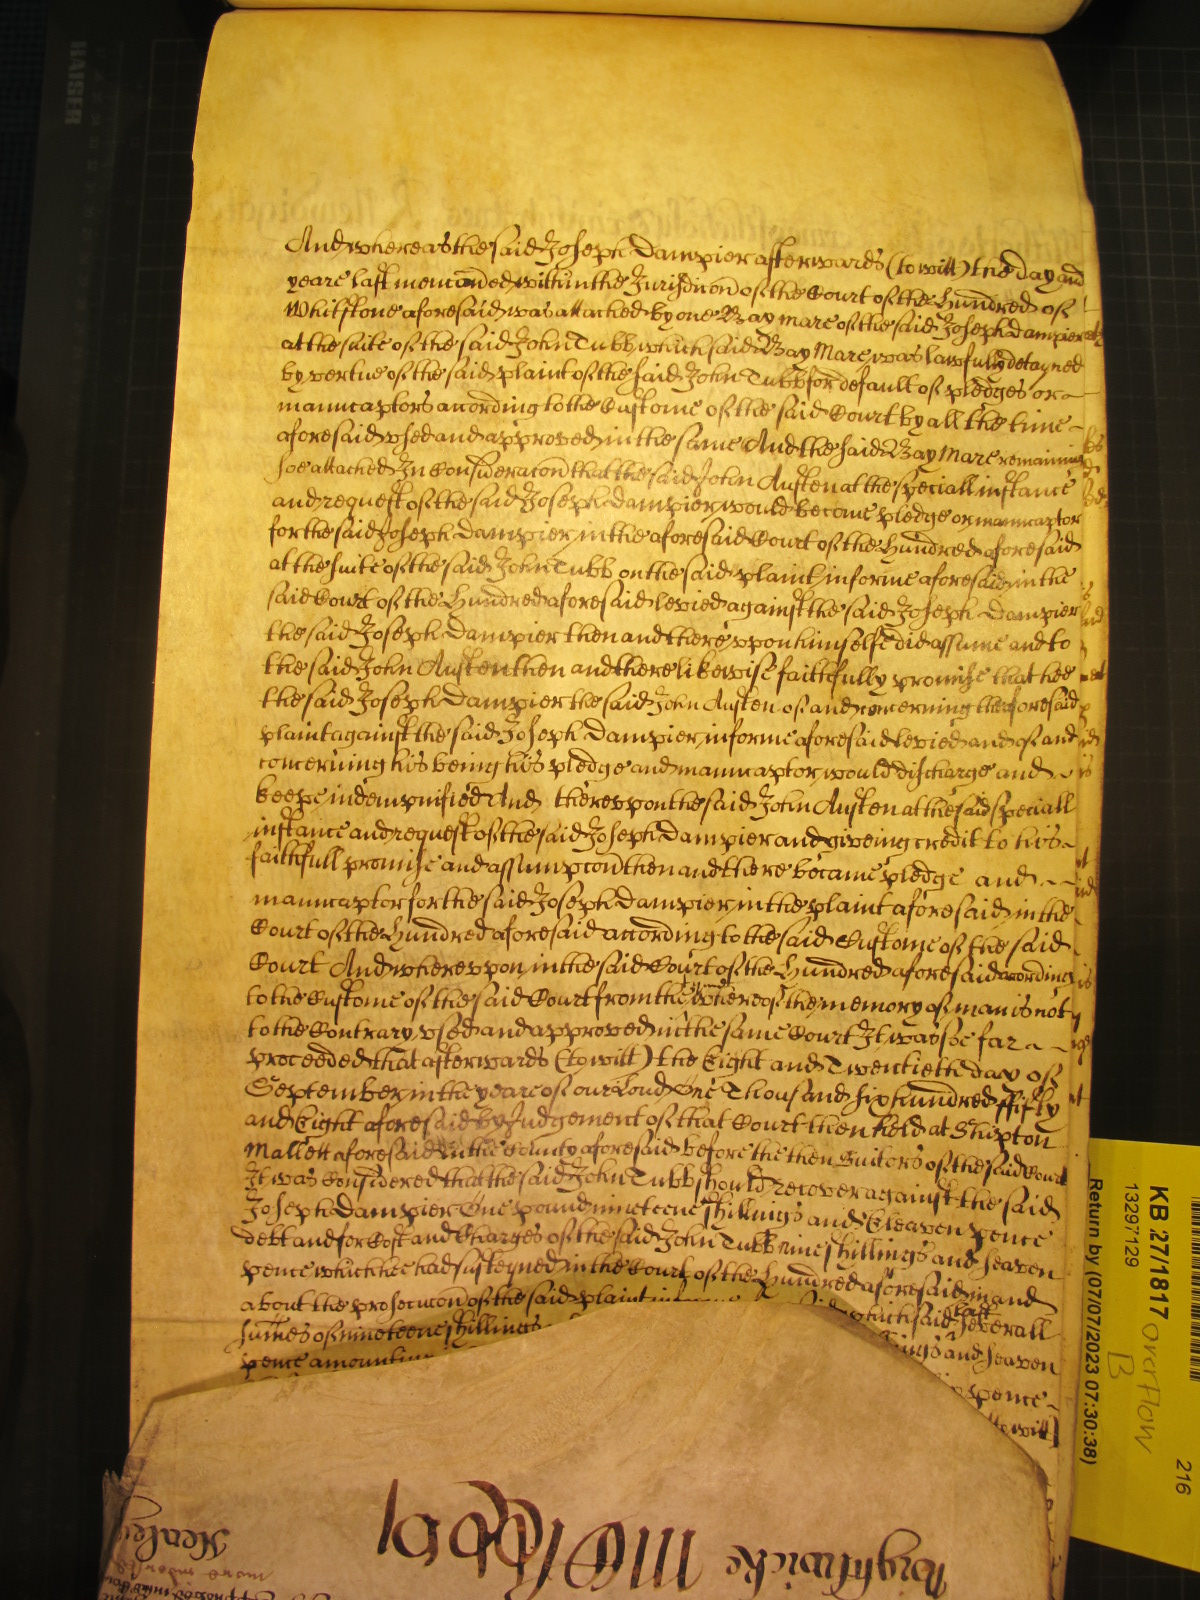 And whereas the said Joseph Dampier afterwards (to witt) the day and
yeare last menconed within the Jurisdiccon of the Court of the Hundred of
Whitstone aforesaid was attached by one Bay Mare of the said Joseph Dampier
at the suite of the said John Tubb which said Bay Mare was lawfully detayned
by vertue of the said plaint of the said John Tubb for default of pledges or
manucaptors according to the Custome of the said Court by all the time
aforesaid vsed and approved in the same And the said Bay Mare remaining
soe attached In Consideracon that the said John Austen at the speciall instance
and request of the said Joseph Dampier would become pledge or manucaptor
for the said Joseph Dampier in the aforesaid Court of the Hundred aforesaid
at the suite of the said John Tubb on the said plaint in forme aforesaid in the
said Court of the Hundred aforesaid levied against the said Joseph Dampier
the said Joseph Dampier then and there vpon himselfe did assume and to
the said John Austen then and there likewise faithfully promise that hee
the said Joseph Dampier the said John Austen of and concerning the aforesaid
plaint against the said Joseph Dampier in forme aforesaid levied and of and
concerning his being his pledge and manucaptor would discharge and
keepe indempnified And therevpon the said John Austen at the said speciall
instance and request of the said Joseph Dampier and giveing credit to his
faithfull promise and assumpcon then and there became pledge and
manucaptor for the said Joseph Dampier in the plaint aforesaid in the
Court of the Hundred aforesaid according to the said Custome of the said
Court And wherevpon in the said Court of the Hundred aforesaid according
to the Custome of the said Court from the time whereof the memory of man is not
to the Contrary vsed and approved in the same Court It was soe far
proceeded that afterwards (to witt) the Eight and Twentieth day of
September in the yeare of our Lord One Thousand six hundred ffifty
and Eight aforesaid by Judgement of that Court then held at Shipton
Mallett aforesaid in the County aforesaid before the then Suitors of the said Court
It was Considered that the said John Tubb should recover against the said
Joseph Dampier One pound nineteene shillings and Eleaven pence
debt and for Cost and Charges of the said John Tubb nine shillings and seaven
pence which hee had susteyned in the Court of the Hundred aforesaid in and
about the prosecucon of the said plaint in
said which said last severall
summes of nineteene shillings
ings and seaven
pence amounting
pence
to witt)
Wightwicke
Henley
more
HAISER
KB 27/1817 overflow
B
13297129
Return by (07/07/2023 07:30:38)
216